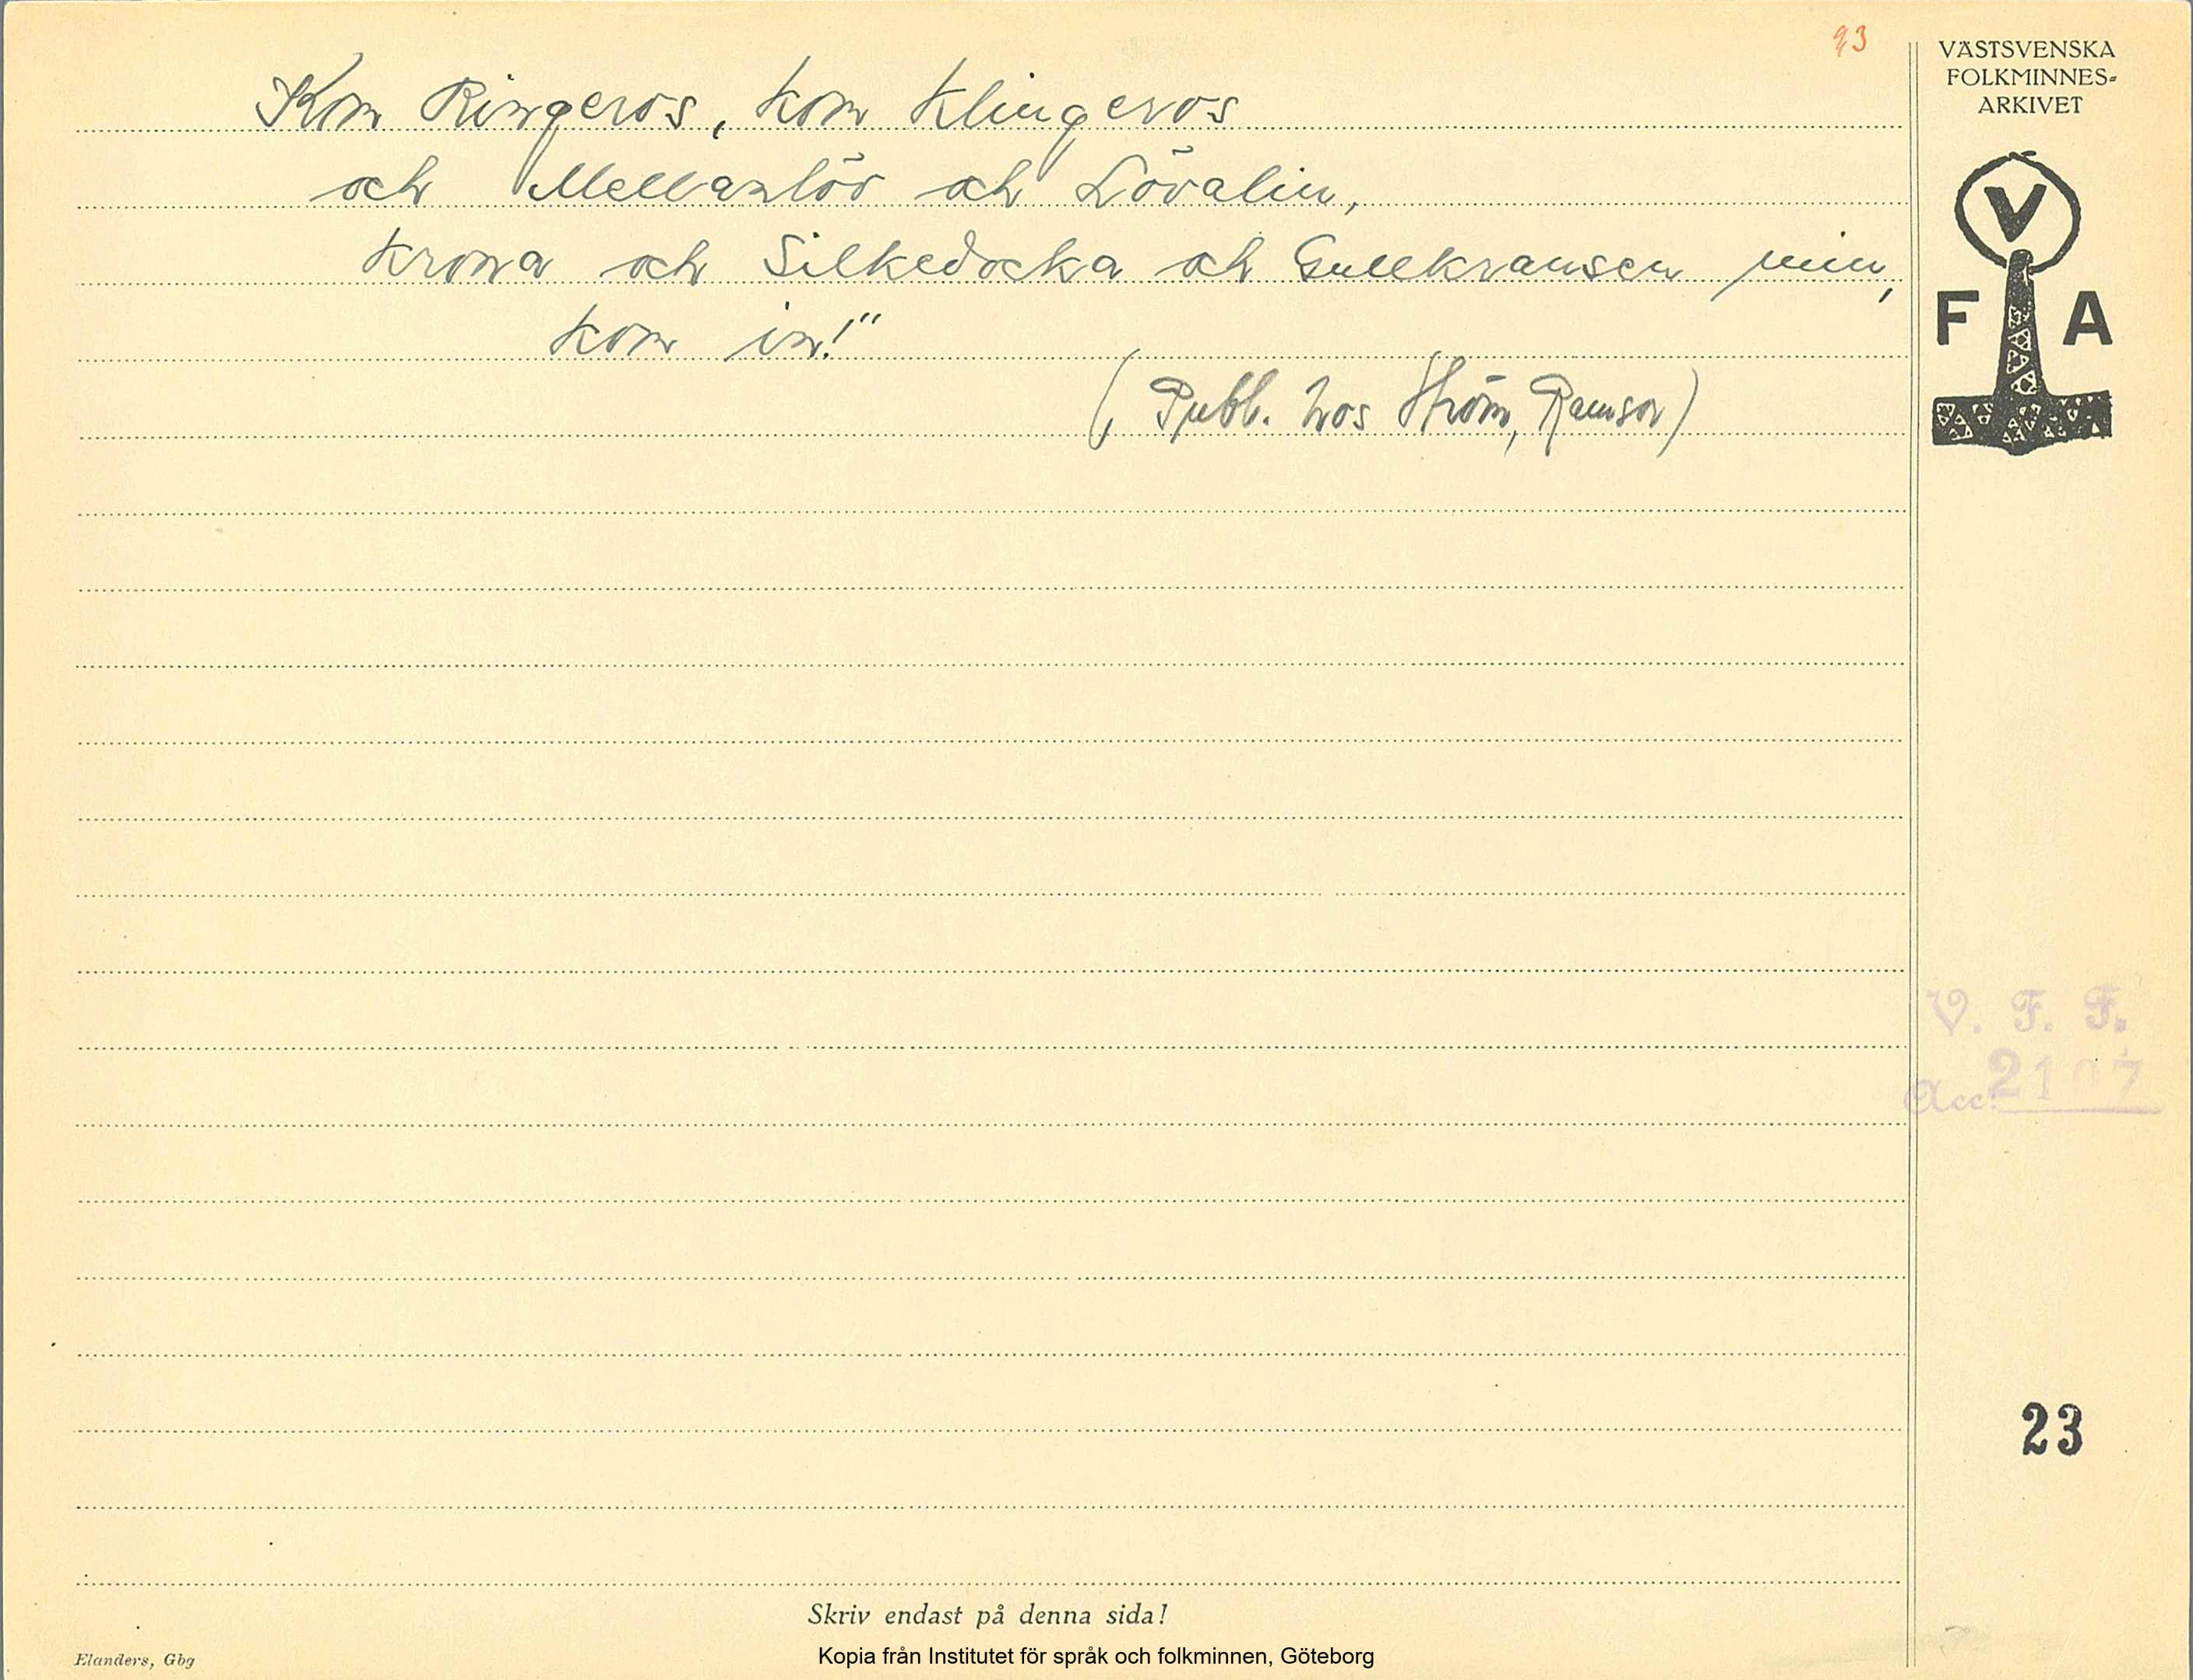 23
VÄSTSVENSKA
FOLKMINNES-
ARKIVET
V
F A
Kom Ringeros, kom Klingeros
och Mellanlöv och Lövalin,
Krona och Silkedocka och Gullkransen min,
kom in!"
(Publ. hos Ström, Ramsor)
V. F. F.
Acc. 2107
23
Skriv endast på denna sida!
Elanders, Gbg
Kopia från Institutet för språk och folkminnen, Göteborg